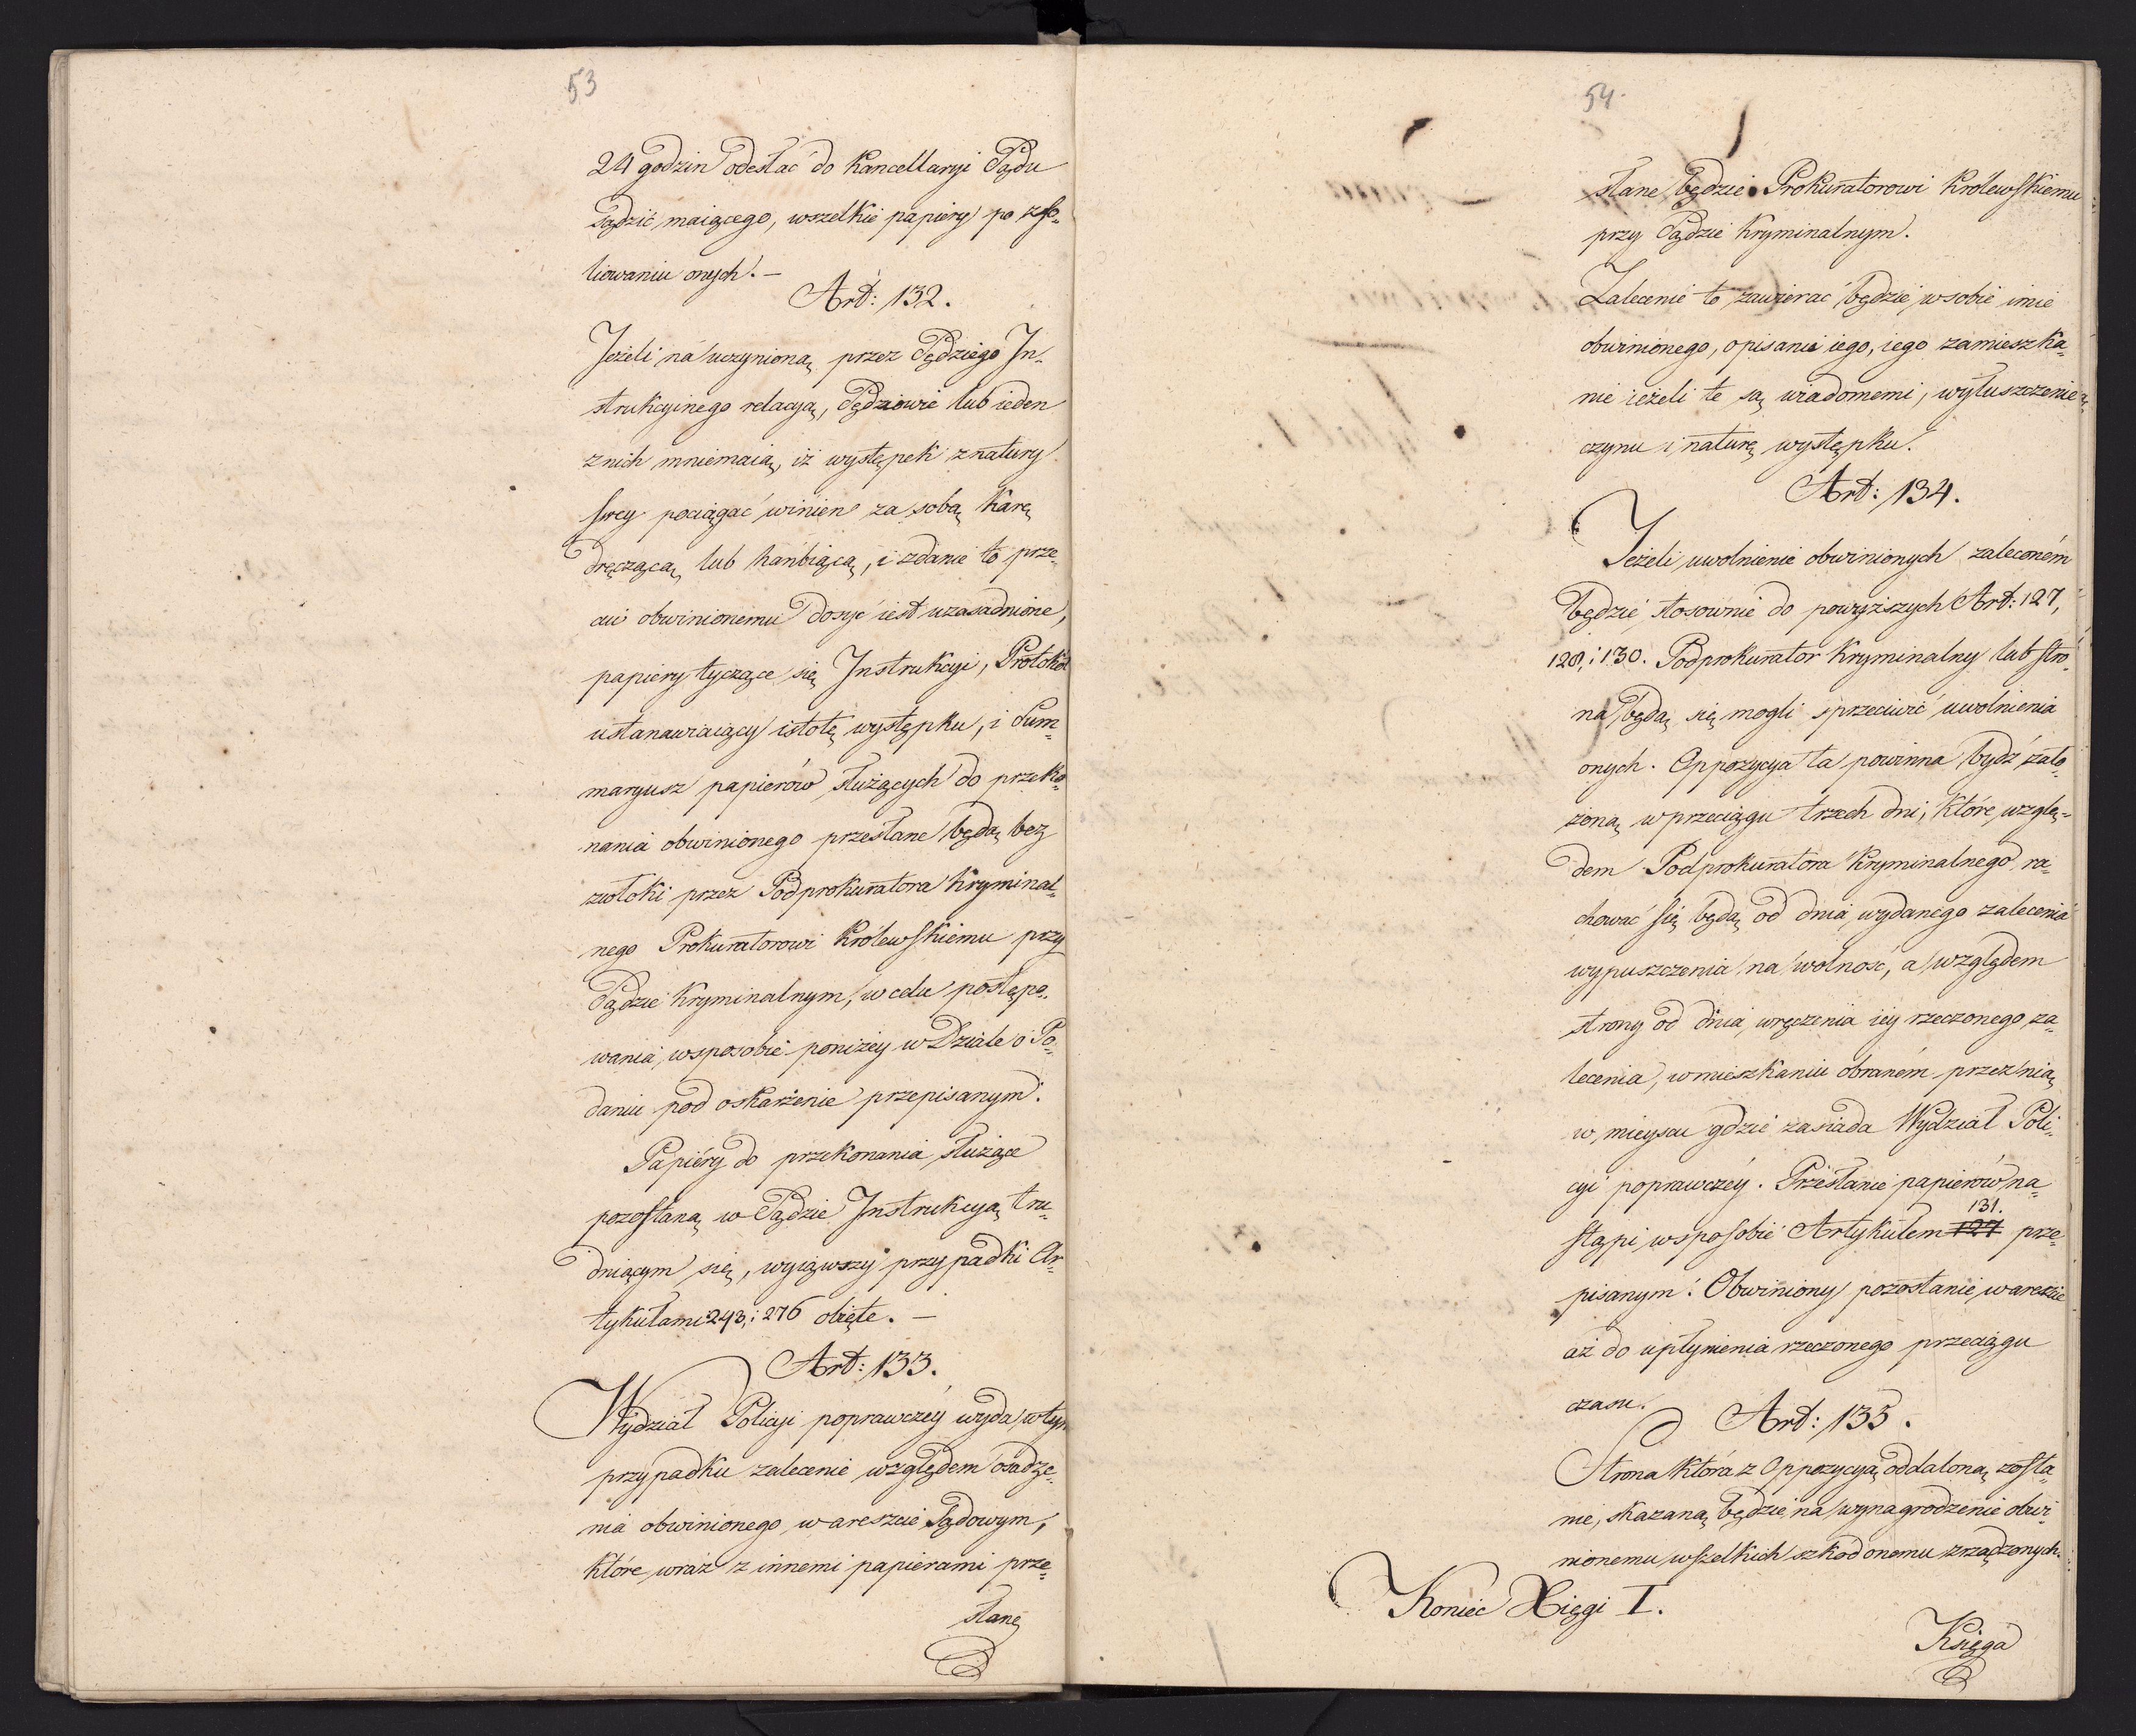 53
24 godzin odesłać do Kancellaryi Sądu
sądzić maiącego, wszelkie papiery po zfo„
liowaniu onych. —
Art: 132.
Jeżeli na uczynioną przez Sędziego In„
strukcyinego relacyą, Sędziowie lub ieden
z nich mniemaią, iż występek z natury
swey pociągać winien za sobą karę
dręczącą lub hańbiącą, i zdanie to prze„
ciw obwinionemu dosyć iest uzasadnione,
papiery tyczące się Instrukcyi, Protokół
ustanawiaiący istotę występku, i Sum„
maryusz papierów służących do przeko„
nania obwinionego przesłane będą bez
zwłoki przez Podprokuratora Kryminal„
nego Prokuratorowi Królewskiemu przy
Sądzie Kryminalnym, w celu postępo„
wania, w sposobie poniżey w Dziale o Po„
daniu pod oskarżenie przepisanym.
Papiéry do przekonania służące
pozostaną w Sądzie Instrukcyą tru„
dniącym się, wyiąwszy przypadki Ar„
tykułami 248, i 276 obięte. —
Art: 133.
Wydział Policyi poprawczéy wyda w tym
przypadku zalecenie względem osadze„
nia obwinionego w areszcie Sądowym,
które wraz z innemi papierami prze„
słane
54.
słane będzie Prokuratorowi Królewskiemu
przy Sądzie Kryminalnym.
Zalecenie to zawierać będzie w sobie imie
obwinionego, opisanie iego, iego zamieszka„
nie ieżeli te są wiadomemi, wyłuszczenie
czynu i naturę występku.
Art: 134.
Jeżeli uwolnienie obwinionych zaleconém
będzie stosownie do powyższych Art: 127,
128, i 130. Podprokurator Kryminalny lub stro„
na będą się mogli sprzeciwić uwolnienia
onych. Oppozycya ta powinna bydź zało„
żoną w przeciągu trzech dni, które wzglę„
dem Podprokuratora Kryminalnego ra„
chować się będą od dnia wydanego zalecenia
wypuszczenia na wolność, a względem
strony od dnia wręczenia iey rzeczonego za„
lecenia, w mieszkaniu obraném przez nią
w mieyscu gdzie zasiada Wydział Poli„
cyi poprawczéy. Przesłanie papierów na„
131.
stąpi w sposobie Artykułem 127 prze„
pisanym. Obwiniony pozostanie w areszcie
aż do upłynienia rzeczonego przeciągu
czasu.
Art: 135.
Strona która z Oppozycyą oddaloną zosta„
nie, skazaną będzie na wynagrodzenie obwi„
nionemu wszelkich szkód onemu zrządzonych.
Koniec Xięgi I.
Księga